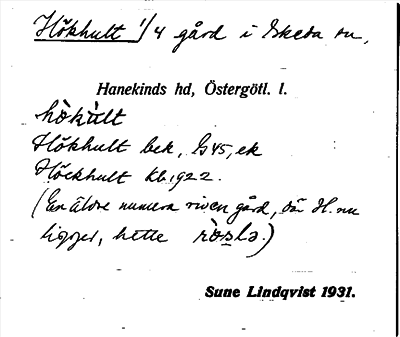 Hökhult 1/4 gård i Skeda sn,
Hanekinds hd, Östergötl. l.
hö̀kúlt
Hökhult bek, G45, ek
Höckhult kb. 1922.
(En äldre numera riven gård, där H. nu
ligger, hette rò̱sla.)
Sune Lindqvist 1931.